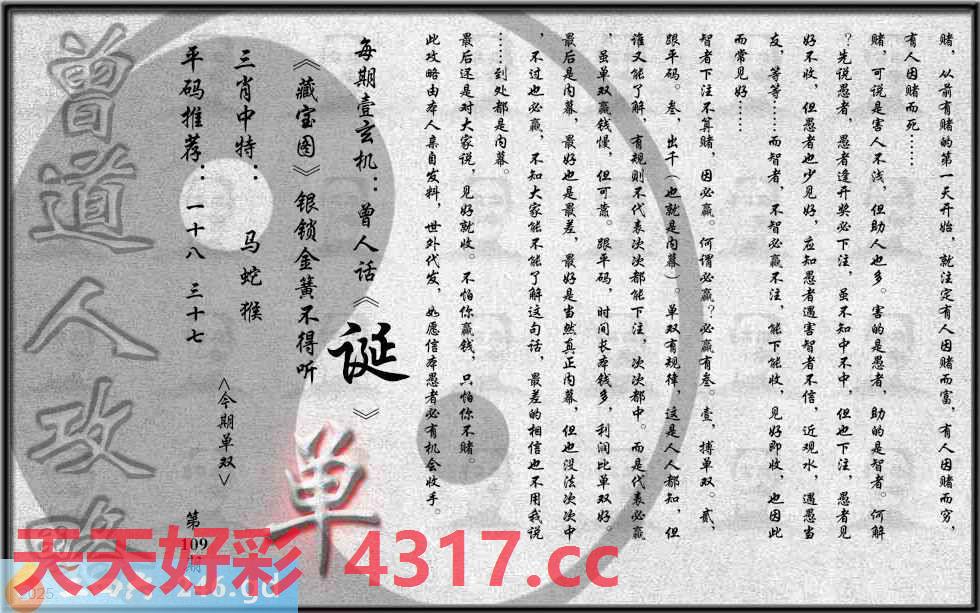 赌，从前有赌的第一天开始，就注定有人因赌而富，有人因赌而穷，
有人因赌而死……
赌，可说是害人不浅，但助人也多。害的是愚者，助的是智者。何解
？先说愚者，愚者逢开奖必下注，虽不知中不中，但也下注，愚者见
好不收，但愚者也少见好，应知愚者遇害智者不信，近观水，遇愚当
友，等等……而智者，不智必赢不注，能下能收，见好即收，也因此
而常见好……
智者下注不算赌，因必赢。何谓必赢？必赢有叁。壹，搏单双。贰，
跟平码。叁，出千（也就是内幕）。单双有规律，这是人人都知，但
谁又能了解，有规则不代表次次都能下注，次次都中。而是代表必赢
，虽单双赢钱慢，但可靠。跟平码，时间长本钱多，利润比单双好。
最后是内幕，最好也是最差，最好是当然真正内幕，但也没法次次中
，不过也必赢，不知大家能不能了解这句话，最差的相信也不用我说
……到处都是内幕。
最后还是对大家说，见好就收。不怕你赢钱，只怕你不赌。
此攻略由本人亲自发料，世外代发，如愿信本愚者必有机会收手。
每期壹玄机：曾人话《诞》
《藏宝图》银锁金簧不得听
单
三肖中特：马蛇猴
<今期单双>
平码推荐：一十八 三十七
第109期
曾道人攻略
天天好彩 4317.cc
2025
246.gd